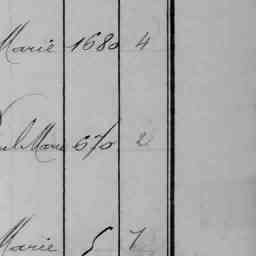 Marie 1680 4
Marie 670 2
Marie 5 7